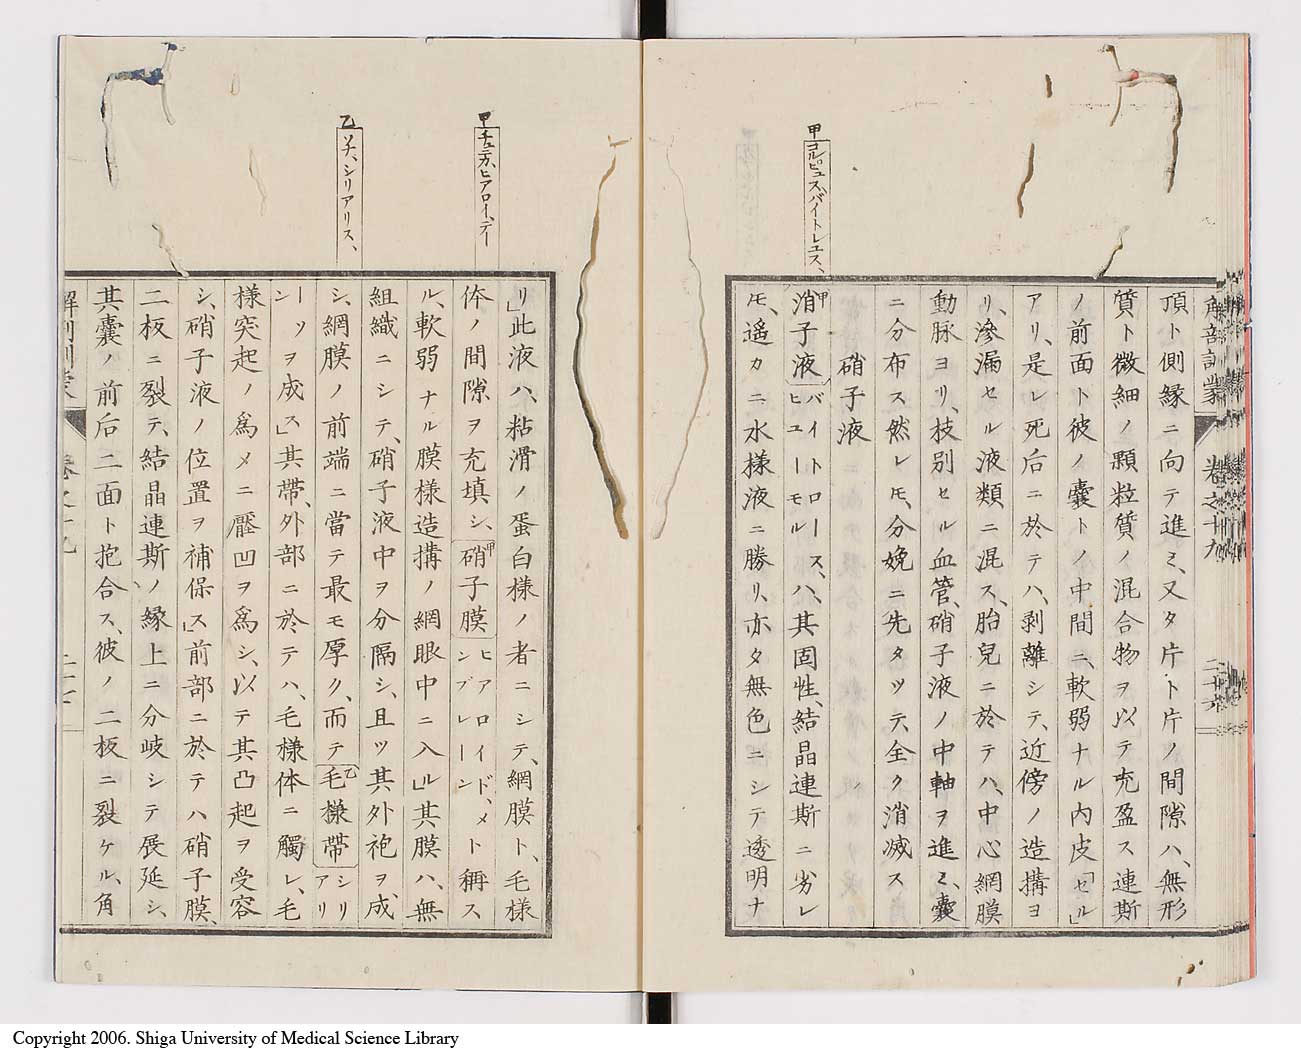 解剖訓蒙 卷之十九 二十六
甲 コルピュス、バイトレエス、
頂ト側縁ニ向テ進ミ、又タ片ト片ノ間隙ハ、無形
質ト微細ノ顆粒質ノ混合物ヲ以テ充盈ス連斯
ノ前面ト彼ノ嚢トノ中間ニ、軟弱ナル内皮「セル」
アリ、是レ死后ニ於テハ、剥離シテ、近傍ノ造搆ヨ
リ、滲漏セル液類ニ混ス、胎兒ニ於テハ、中心網膜
動脉ヨリ、枝別セル血管、硝子液ノ中軸ヲ進ミ、嚢
ニ分布ス然レモ、分娩ニ先タツテ全ク消滅ス
硝子液
甲硝子液 バイトロース、ヒユーモル ハ、其固性、結晶連斯ニ劣レ
モ、遙カニ水様液ニ勝リ、亦タ無色ニシテ透明ナ
甲 チュニカ、ヒアロイデー
乙 ソナ、シリアリス、
リ」此液ハ、粘滑ノ蛋白様ノ者ニシテ、網膜ト、毛様
体ノ間隙ヲ充填シ、甲硝子膜 ヒアロイド、メンブレーン ト稱ス
ル、軟弱ナル膜様造搆ノ網眼中ニ入ル」其膜ハ、無
組織ニシテ、硝子液中ヲ分隔シ、且ツ其外袍ヲ成
シ、網膜ノ前端ニ當テ最モ厚ク、而テ乙毛様帶 シリアリ
ーゾーン ヲ成ス」其帶、外部ニ於テハ、毛様体ニ觸レ、毛
様突起ノ爲メニ壓凹ヲ爲シ、以テ其凸起ヲ受容
シ、硝子液ノ位置ヲ補保ス」前部ニ於テハ硝子膜、
二板ニ裂テ、結晶連斯ノ縁上ニ分岐シテ展延シ、
其嚢ノ前后二面ト抱合ス、彼ノ二板ニ裂ケル、角
解剖訓蒙 卷之十九